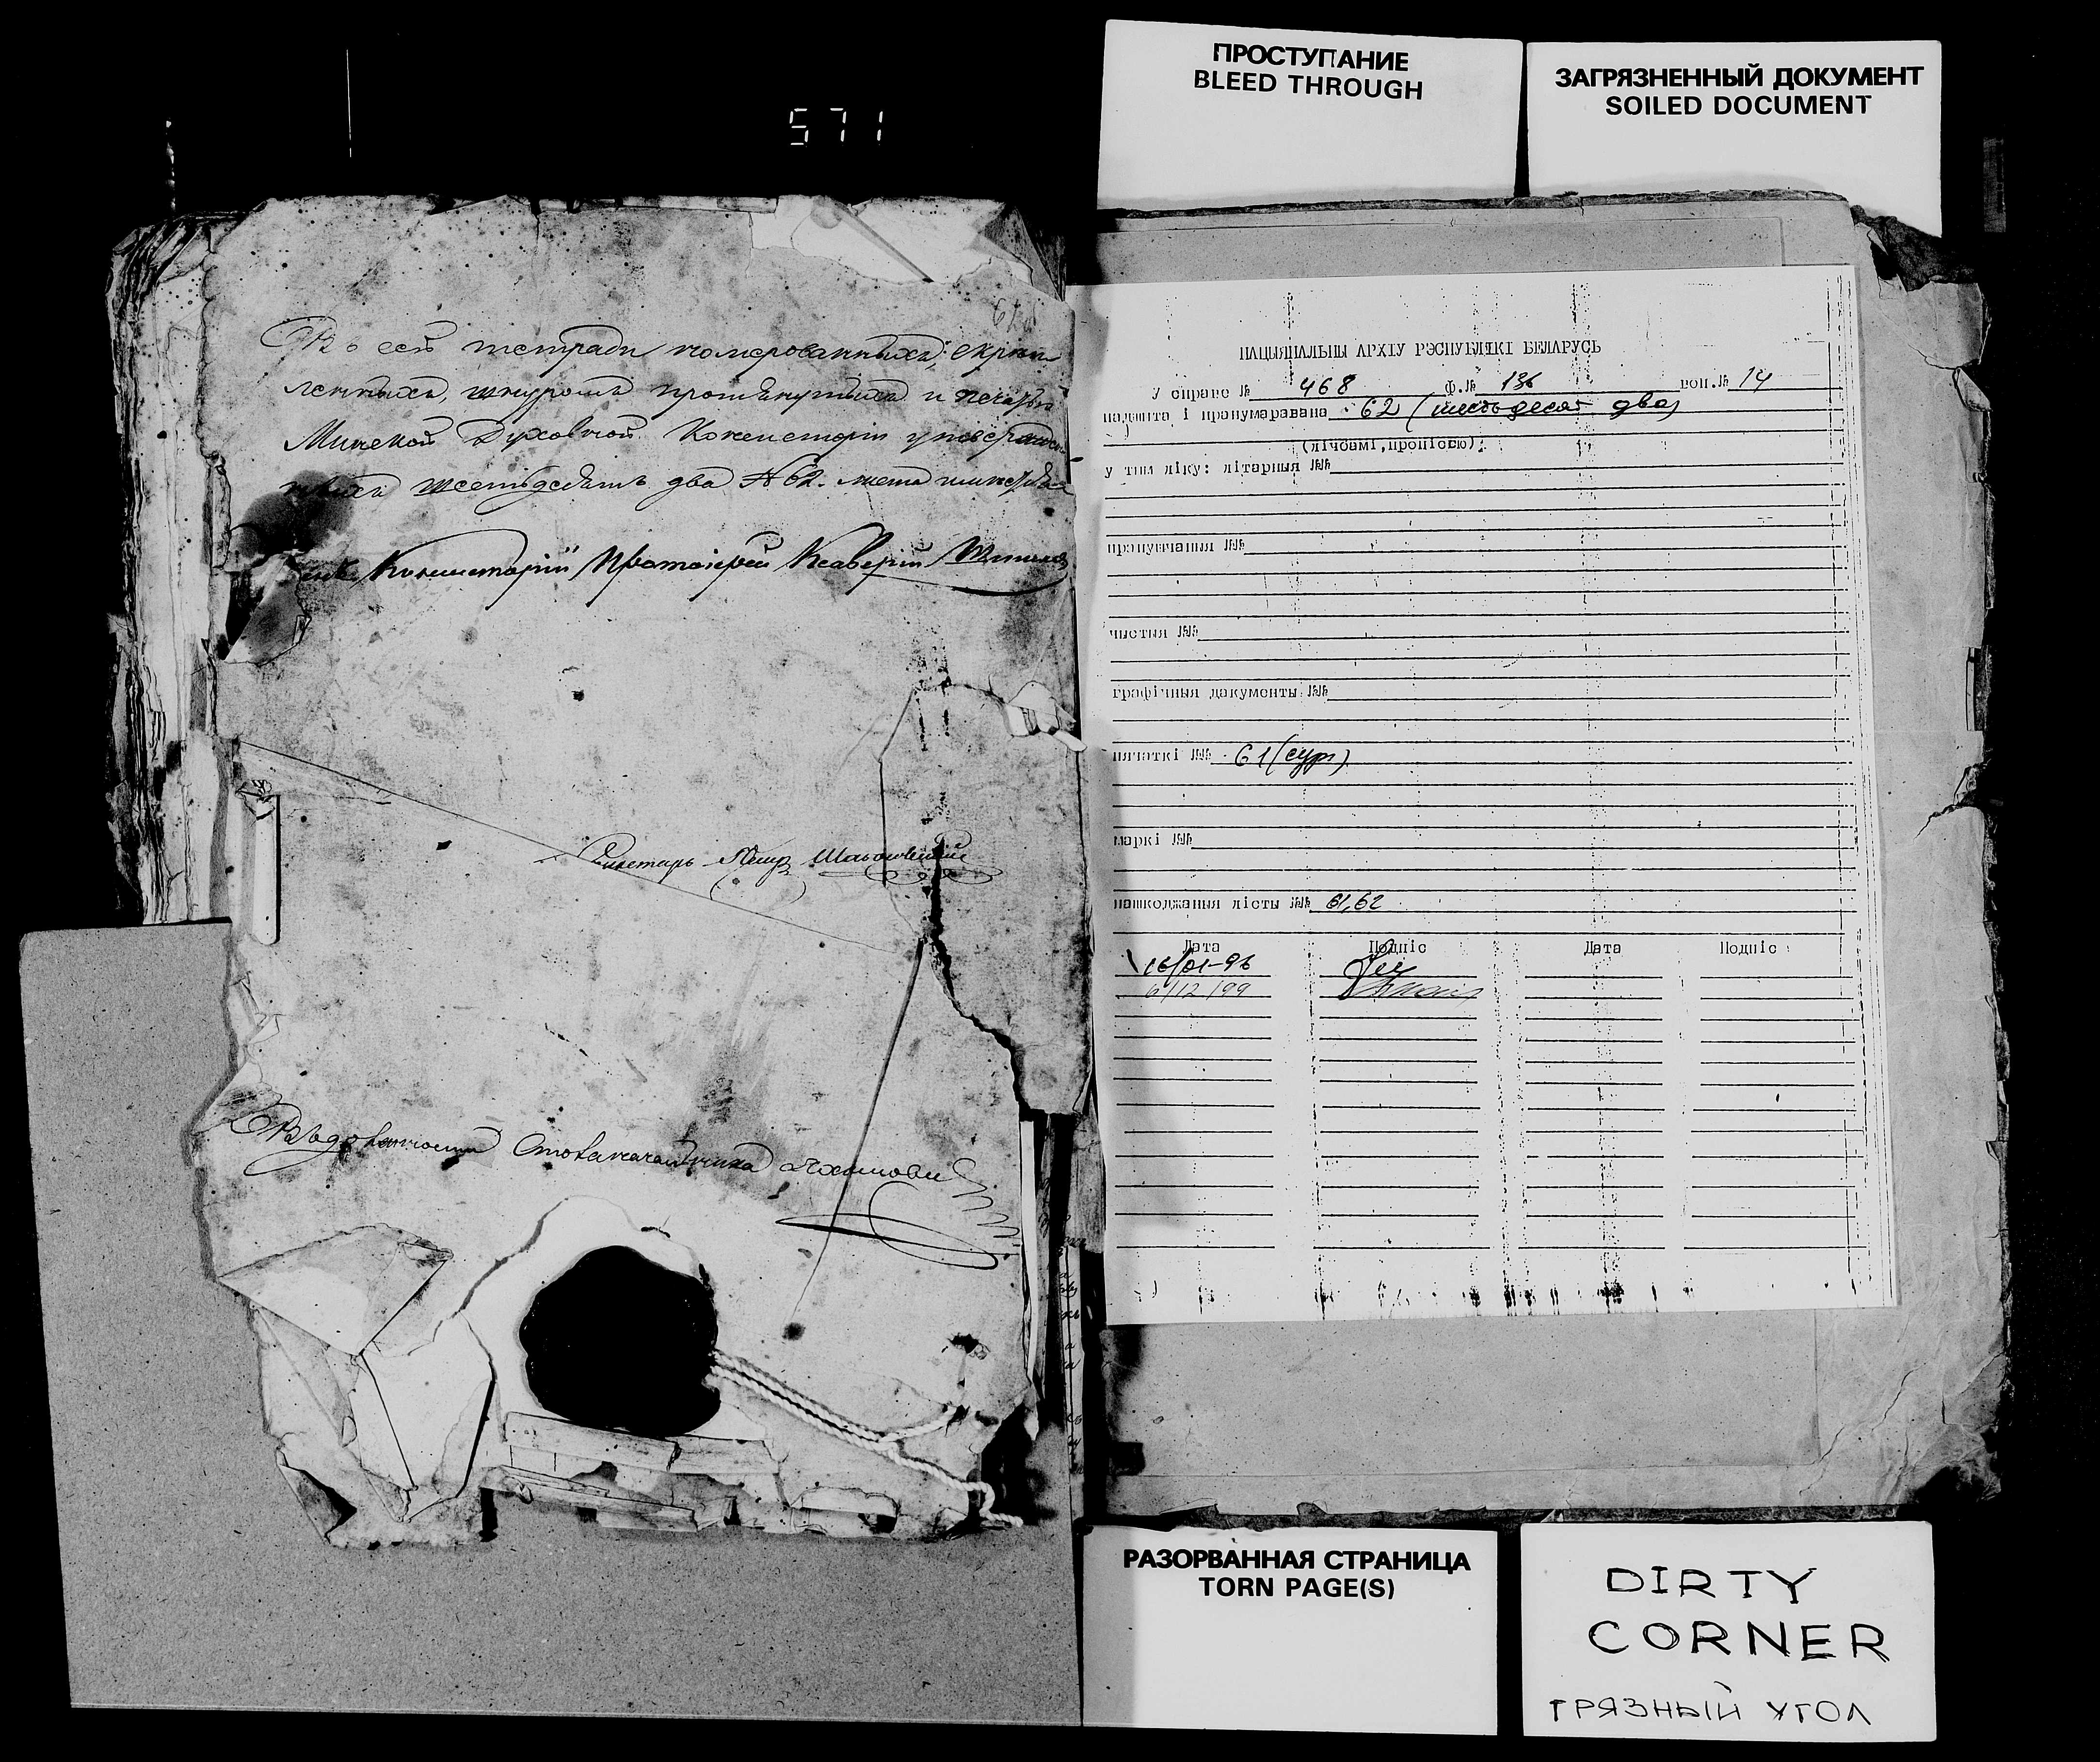 571
ПРОСТУПАНИЕ
BLEED THROUGH
ЗАГРЯЗНЕННЫЙ ДОКУМЕНТ
SOILED DOCUMENT
62
Въ сей тетради номерованныхъ, скреп
ленныхъ, шнуромъ протянутыхъ и печатью
Минской Духовной Консисторіи
шестьдесятъ два № 62. листа
Консисторіи Протоіерей Ксаверій
Секретарь
Столоначальника
НАЦЫЯНАЛЬНЫ АРХІУ РЭСПУБЛІКІ БЕЛАРУСЬ
У справе № 468 Ф.№ 136 воп.№ 14
падшыта і пранумаравана 62 (шестьдесят два)
(лічбамі, пропіссю)
у тым ліку: літарныя №№
прапушчаныя №№
чыстыя №№
графічныя дакументы №№
пячаткі №№ 61 (сург)
маркі №№
пашкоджаныя лісты №№ 61,62
Дата Подпіс Дата Подпіс
16/01-96
6/12/99
РАЗОРВАННАЯ СТРАНИЦА
TORN PAGE(S)
DIRTY
CORNER
ГРЯЗНЫЙ УГОЛ